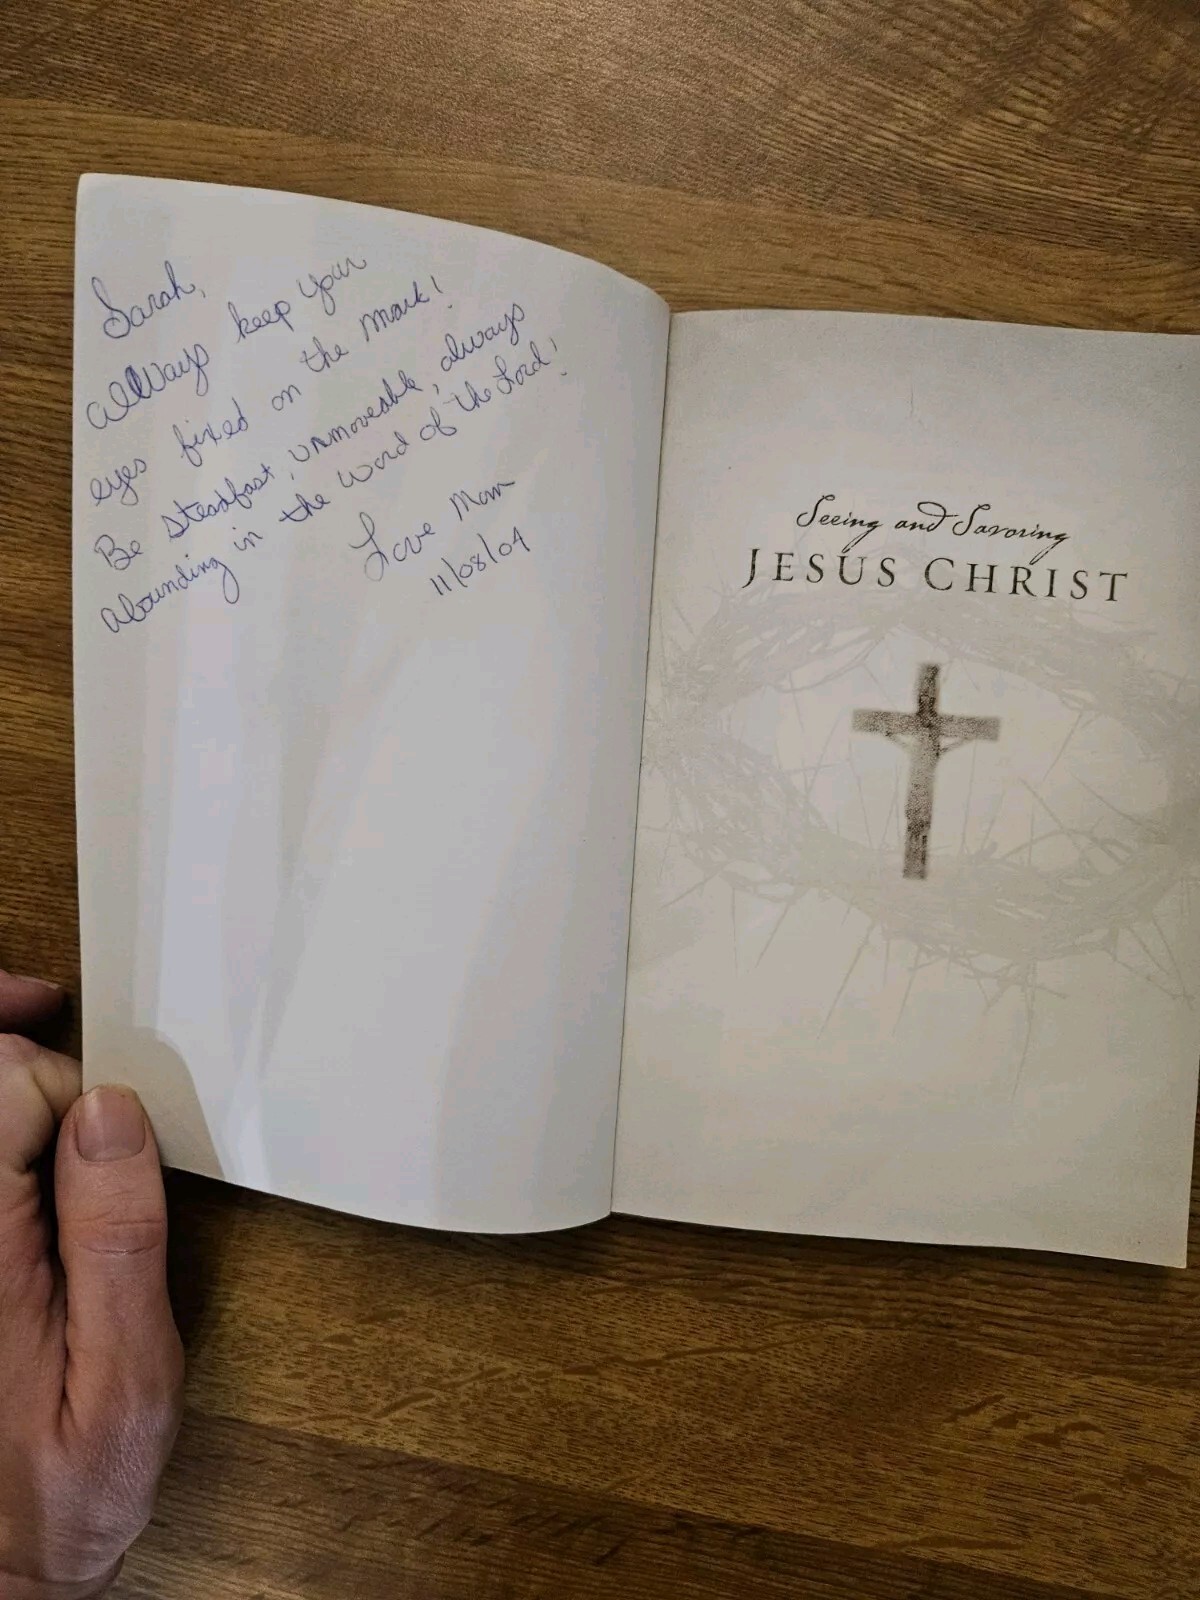 Sarah,
Always keep your
eyes fixed on the Mark!
Be steadfast, unmoveable, always
abounding in the Word of the Lord!
Love Mom
11/08/04
Seeing and Savoring
JESUS CHRIST